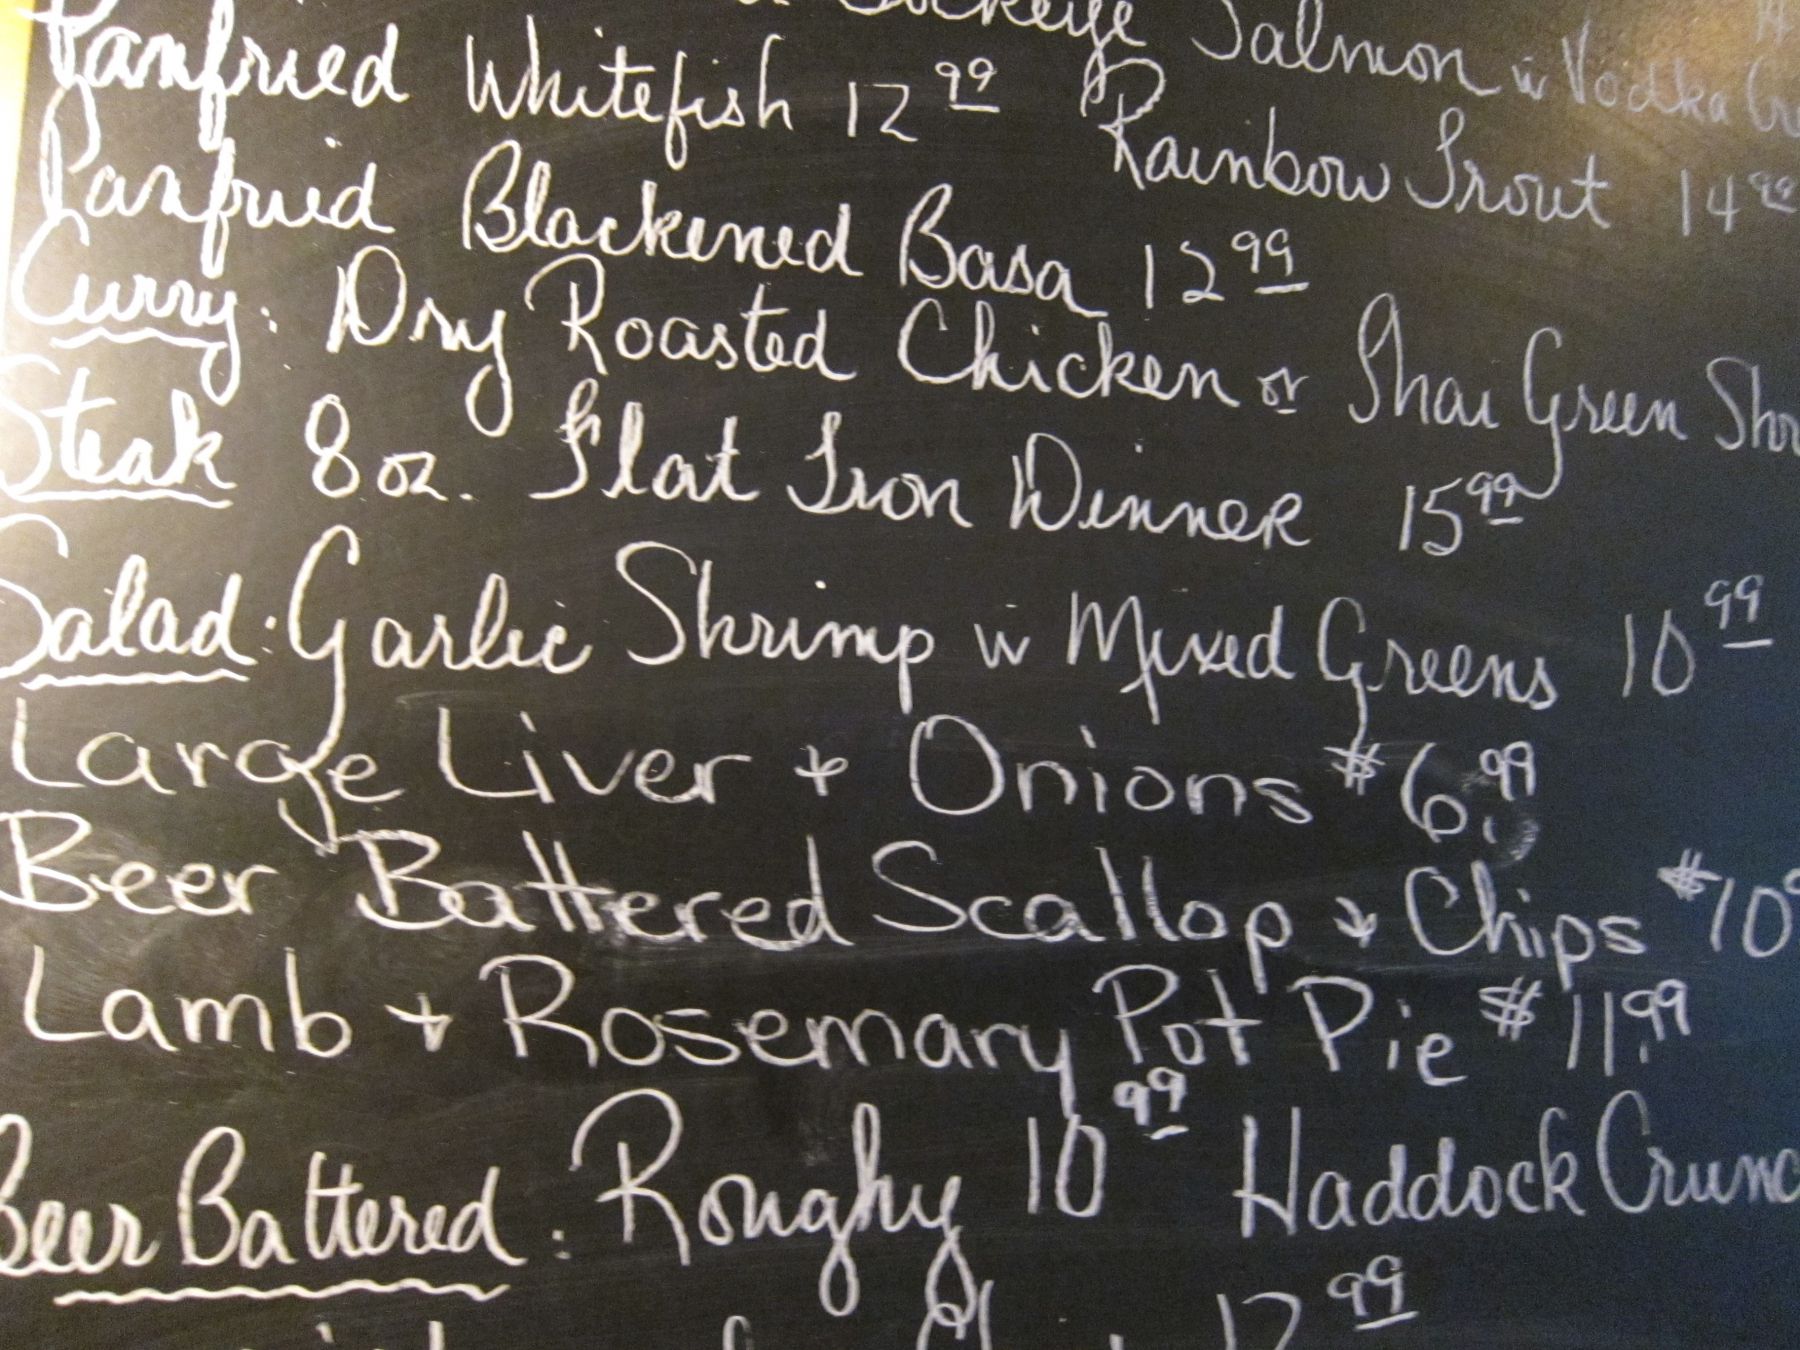 Sockeye Salmon w Vodka
Panfried Whitefish 12 99 Rainbow Trout 14 99
Panfried Blackened Basa 12 99
Curry: Dry Roasted Chicken or Thai Green
Steak 8 oz. Flat Iron Dinner 15 99
Salad: Garlic Shrimp w Mixed Greens 10 99
Large Liver + Onions $6.99
Beer Battered Scallop + Chips $10
Lamb + Rosemary Pot Pie $11.99
Beer Battered: Roughy 10 99 Haddock
12 99